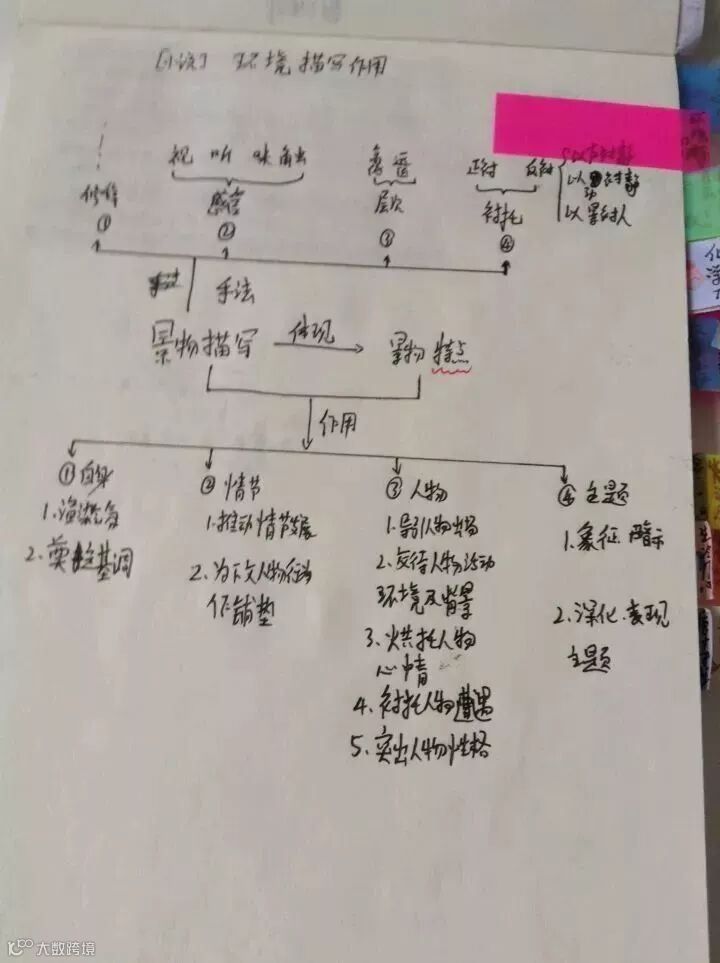 [小说] 环境描写作用
视 听 味 触
高 低
正衬 反衬
以声衬静
以动衬静
以景衬人
修辞
感官
层次
衬托
① ② ③ ④
手法
景物描写 体现 景物特点
作用
① 自身
1.渲染气氛
2.奠定基调
② 情节
1.推动情节发展
2.为下文人物行动
作铺垫
③ 人物
1.导引人物出场
2.交待人物活动
环境及背景
3.烘托人物
心情
4.衬托人物遭遇
5.突出人物性格
④ 主题
1.象征.暗示
2.深化.表现
主题
大数跨境